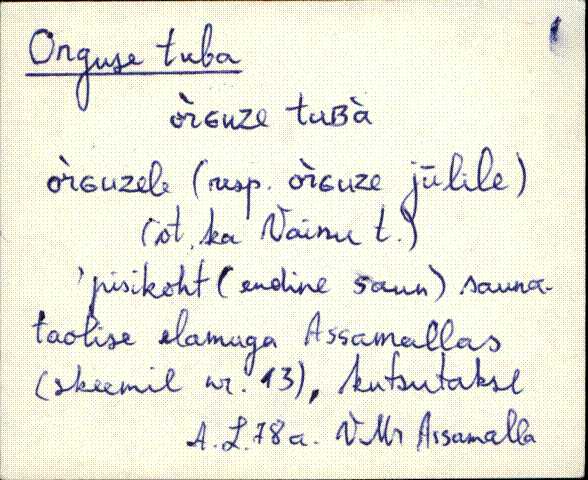 1
Orguse tuba
òrɢuze tuʙà
òrɢuzele (resp. òrɢuze jūlile)
(vt. ka Vainu t.)
'pisikoht (endine saun) sauna-
taolise elamuga Assamallas
(skeemil nr. 13), kutsutakse
A. L. 78 a. VMr Assamalla